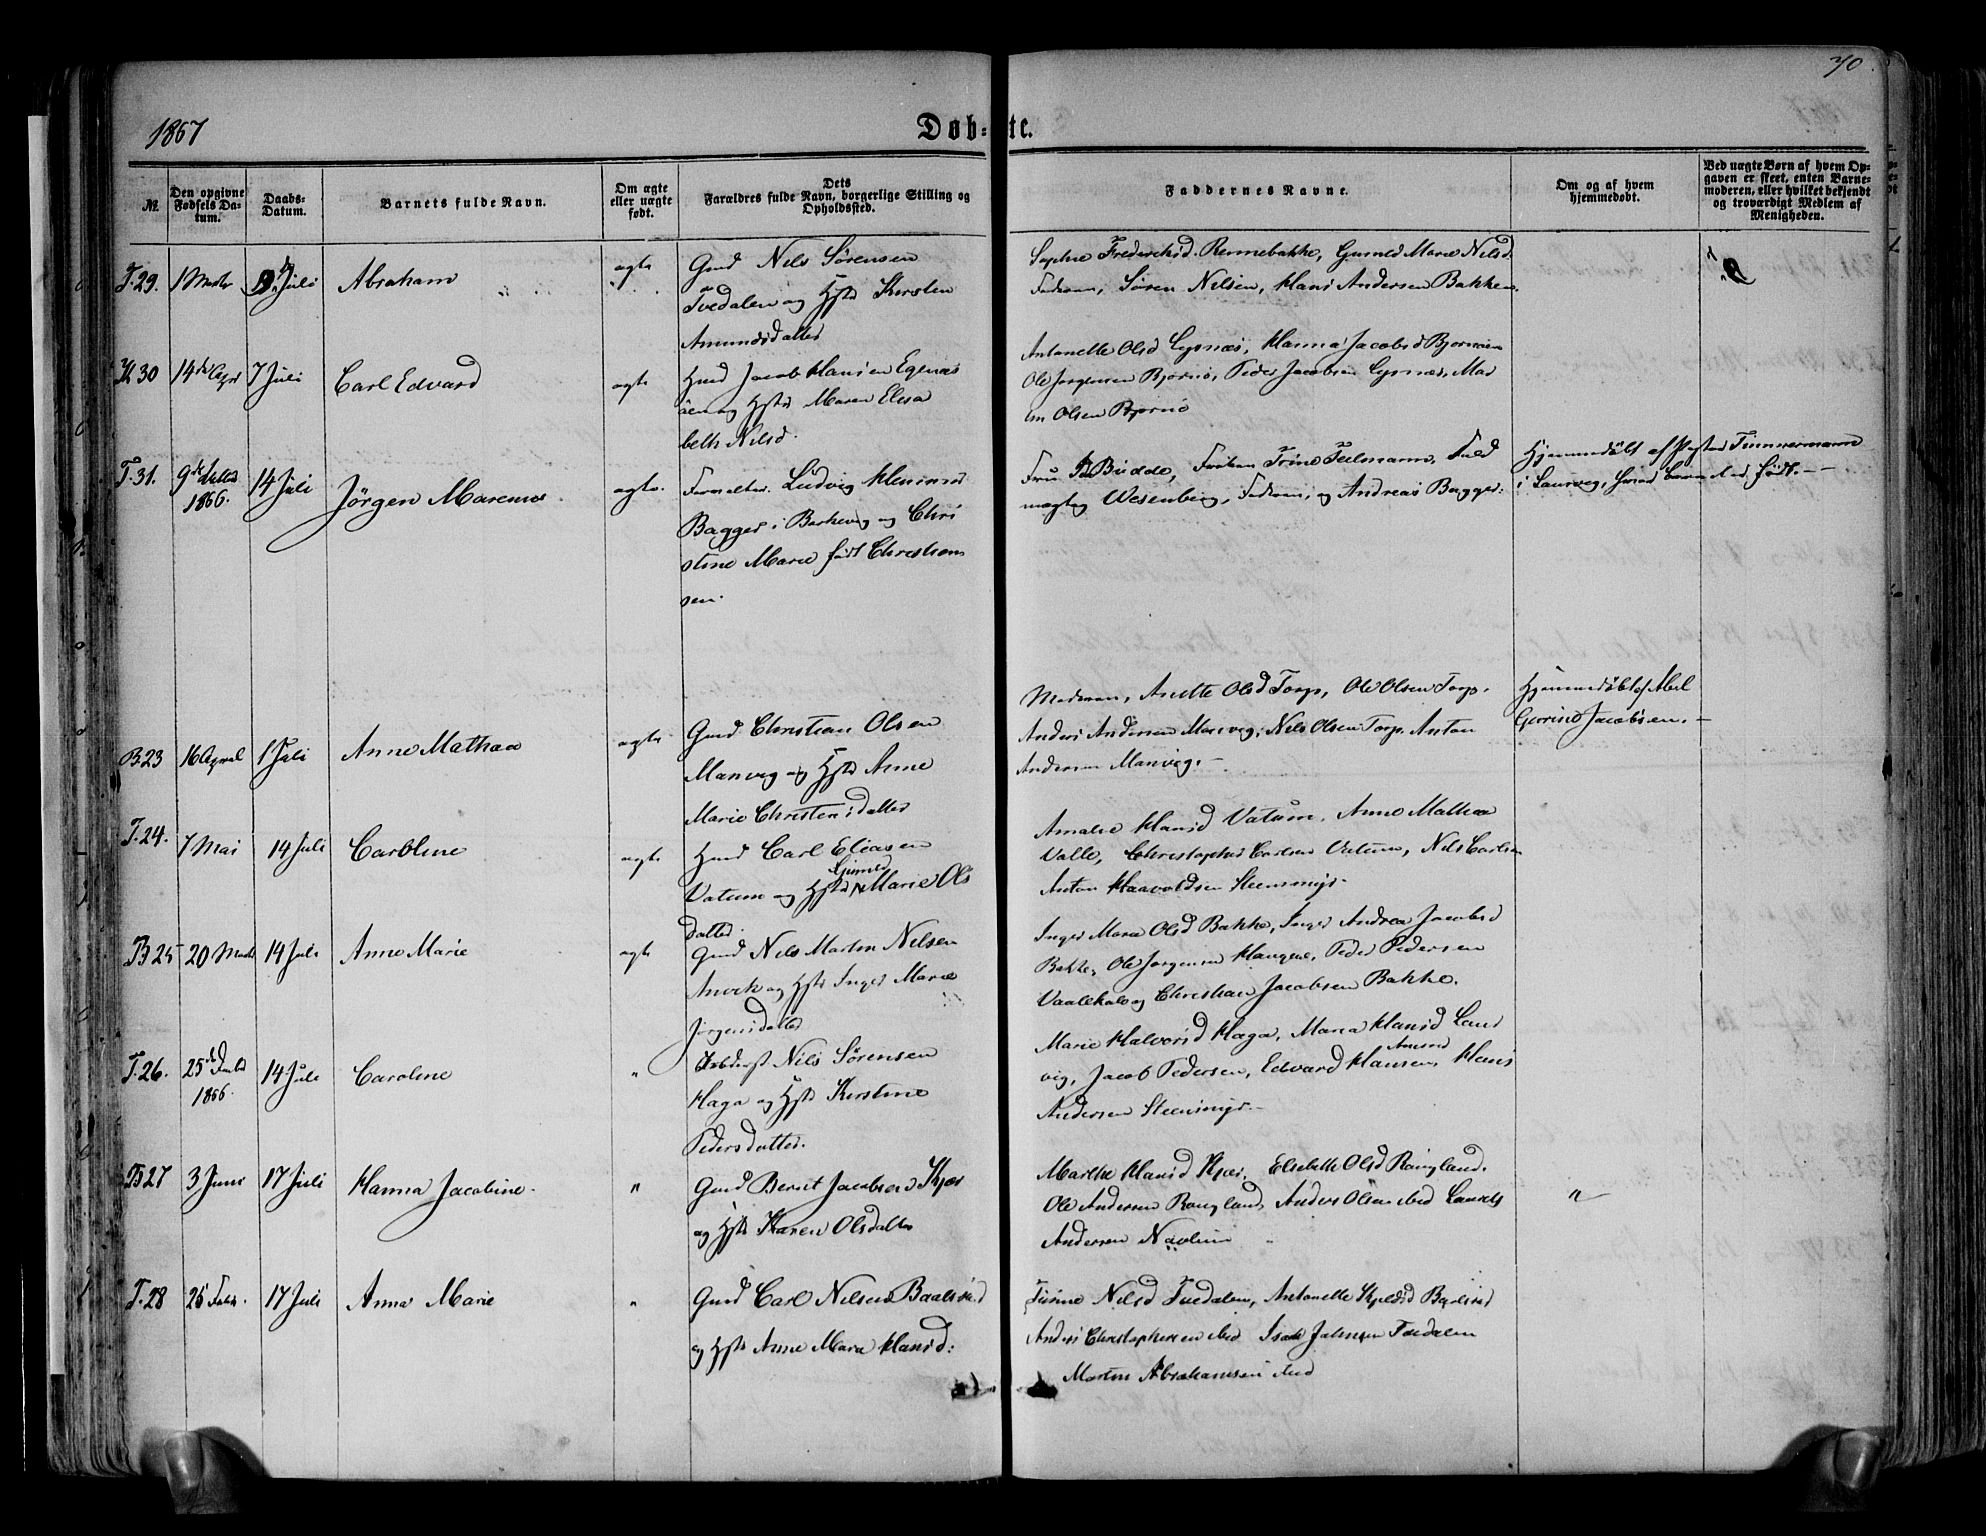 70
1867
Døb-te.
№
Den opgivne Fødsels Datum.
Daabs-Datum.
Barnets fulde Navn.
Om ægte eller uægte født.
Dets Forældres fulde Navn, borgerlige Stilling og Opholdssted.
Faddernes Navne.
Om og af hvem hjemmedøbt.
Ved uægte Børn af hvem Opgaven er skeet, enten Barnemoderen, eller hvilket bekjendt og troværdigt Medlem af Menigheden.
T.29. 1 Marts Juli Abraham ægte
Gmd Nils Sørensen
Tvedalen og Hst Kirsten
Amundsdatter
Sophie Frederiksd. Rennebakke, Gunild Marie Nilsd.
Faderen, Søren Nilsen, Hans Andersen Bakken.
30 14de April 7 Juli Carl Edvard ægte
Hmd Jacob Hansen
og Hst Maren Elisa
beth Nilsd.
Antonette Olsd Hanna Jacobsd
Ole Jørgensen Bjørnø, Peder Jacobsen Mar
Olsen Bjørnø
T.31. 9de 1866. 14 Juli Jørgen Marenus ægte.
Forvalter Ludvig
Bagger i Barkevig og Chri
stine Marie født Christian
sen.
Fru Budde, Frøken Trine Teilmann, Fuld
mægtig Wesenberg, Faderen, og Andreas Bagger.
Hjemmedøbt af Timmermann
i Laurvig, hvor Barnet er født.
B.23 16 April 1 Juli Anne Mathea ægte
Gmd Christian Olsen
Manvig og Hst Anne
Marie Christensdatter
Moderen, Anette Olsd Torp, Ole Olsen Torp.
Anders Andersen Manvig, Nils Olsen Torp. Anton
Andersen Manvig.
Hjemmedøbt af Abel
Jacobsen.
T.24. 7 Mai 14 Juli Caroline ægte
Hmd Carl Eliasen
Vatum og Hst Gunild Marie Ols
datter.
Amalie Hansd Vatum, Anne Mathea
Valle, Christopher Carlsen Vatum, Nils Carlsen
Anton Haavoldsen Steensmyr.
B 25 20 Marts 14 Juli Anne Marie ægte
Gmd Nils Martin Nilsen
og Hst Inger Marie
Jørgensdatter
Inger Marie Olsd Bakke, Inger Andrea Jacobsd
Bakke, Ole Jørgensen Haugene, Peder Pedersen
og Christian Jacobsen Bakke.
T.26. 25de 1866. 14 Juli Caroline "
Nils Sørensen
Haga og Hst Kirstine
Pedersdatter.
Marie Halvorsd Haga, Maria Hansd Laur
vig, Jacob Pedersen, Edvard Hansen, Hans
Andersen Steensmyr.
B 27 3 Juni 17 Juli Hanna Jacobine. "
Gmd Bernt Jacobsen Kjær
og Hst Karen Olsdatter
Marthe Hansd Kjær, Elsebette Olsd Rougland.
Ole Andersen Rougland, Anders Olsen ibid Laurits
Andersen
"
T.28 25 Febr. 17 Juli Anna Marie "
Gmd Carl Nilsen
og Hst Anne Marie Hansd:
Nilsd Tvedalen, Antonette
Anders Christophersen ibid Isak Johnsen Tvedalen
Martin Abrahamsen ibid